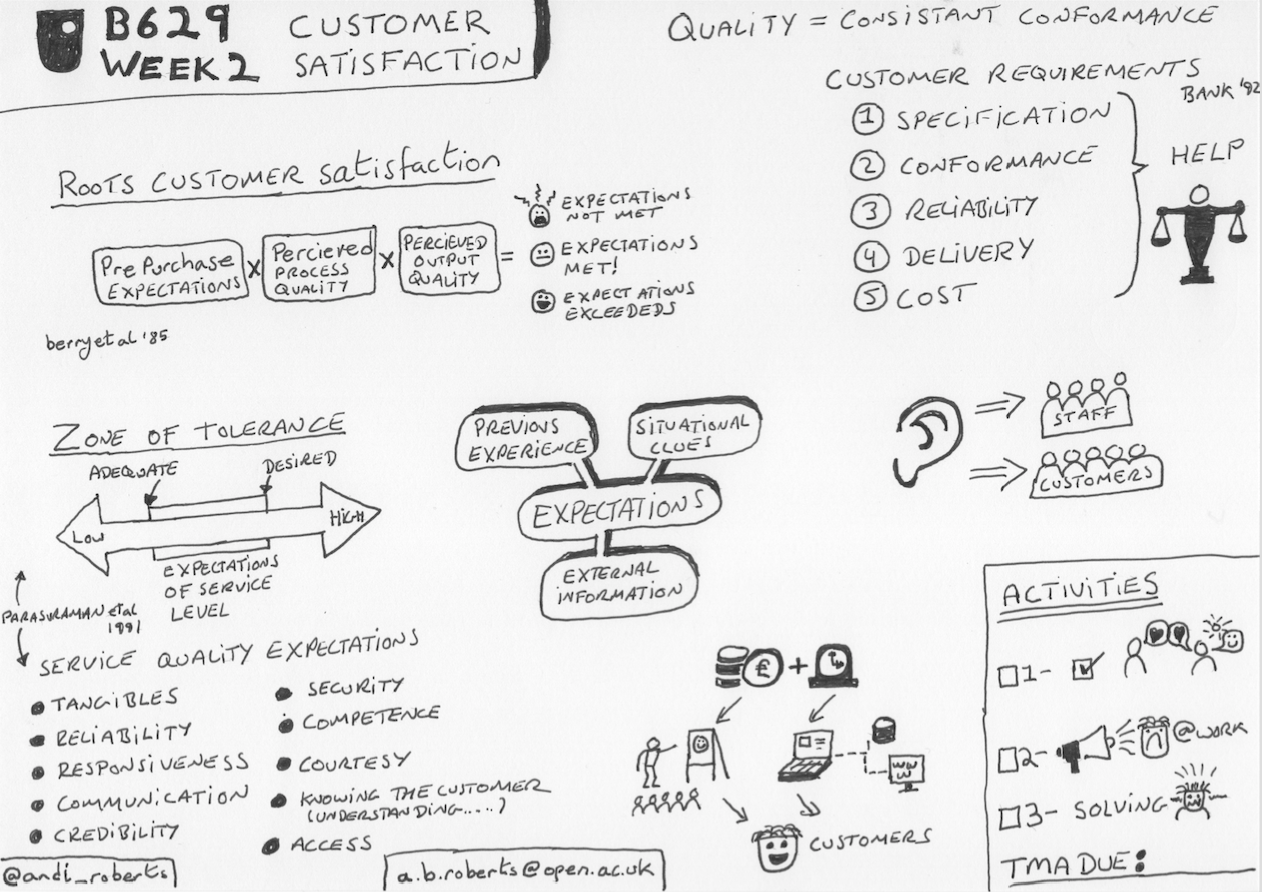 B629
WEEK 2
CUSTOMER
SATISFACTION
QUALITY = CONSISTANT CONFORMANCE
CUSTOMER REQUIREMENTS
BANK '92
1 SPECIFICATION
2 CONFORMANCE
3 RELIABILITY
4 DELIVERY
5 COST
HELP
ROOTS CUSTOMER satisfaction
Pre Purchase
EXPECTATIONS
x
Percieved
PROCESS
QUALITY
x
PERCIEVED
OUTPUT
QUALITY
=
EXPECTATIONS
NOT MET
EXPECTATIONS
MET!
EXPECTATIONS
EXCEEDEDS
berry et al '85
ZONE OF TOLERANCE
ADEQUATE
DESIRED
LOW
HIGH
EXPECTATIONS
OF SERVICE
LEVEL
PARASURAMAN et al
1991
PREVIOUS
EXPERIENCE
SITUATIONAL
CLUES
EXPECTATIONS
EXTERNAL
INFORMATION
STAFF
CUSTOMERS
SERVICE QUALITY EXPECTATIONS
TANGIBLES
RELIABILITY
RESPONSIVENESS
COMMUNICATION
CREDIBILITY
SECURITY
COMPETENCE
COURTESY
KNOWING THE CUSTOMER
(UNDERSTANDING.....)
ACCESS
£ +
WWW
CUSTOMERS
ACTIVITIES
1-
2- @WORK
3- SOLVING
TMA DUE:
@andi_roberts
a.b.roberts@open.ac.uk